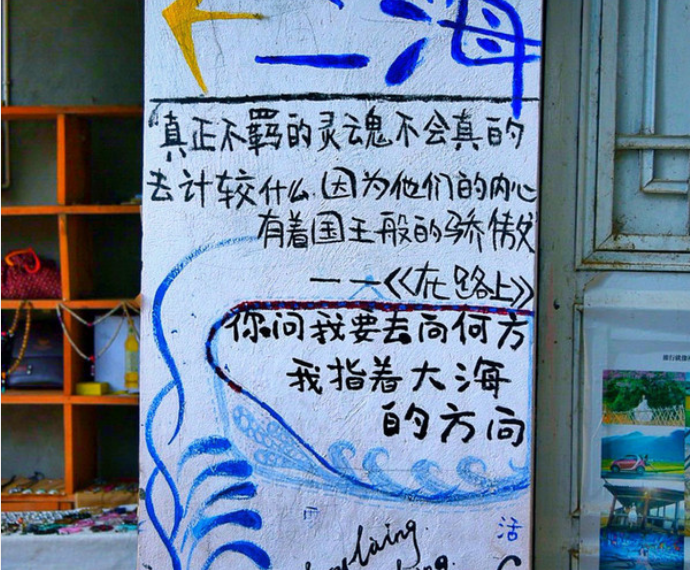 海
“真正不羁的灵魂不会真的
去计较什么.因为他们的内心
有着国王般的骄傲”
——《在路上》
你问我要去向何方
我指着大海
的方向
活